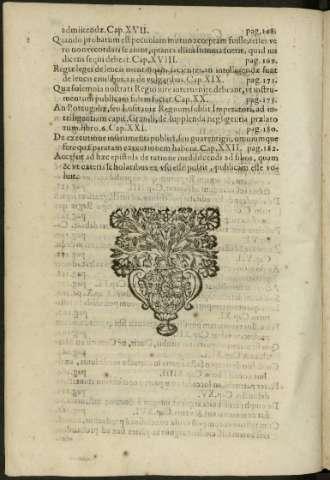 admittendæ. Cap. XVII. pag. 168.
Quando probatum est pecuniam mutuo acceptam fuisse, testes ve
ro non recordari se aiunt, quanta illius summa fuerit, quid iu
dicem sequi debeat. Cap. XVIII. pag. 169.
Regiæ leges de leucis mentionem facientes, an intelligendæ sunt
de leucis an de vulgaribus. Cap. XIX. pag. 171.
Quæ solemnia nostrati Regio iure intervenire debeant, ut instru-
mentum publicam fidem faciat. Cap. XX. pag. 175.
An Portugaliæ, seu Lusitaniæ Regnum subsit Imperatori, ad in-
telligentiam capit. Grandi, de supplenda negligentia prælato
rum, libro 6. Cap. XXI. pag. 180.
De executione instrumenti publici, seu guarentigij, omnium que
fere quæ paratam executionem habent. Cap. XXII. pag. 182.
Accessit ad hæc epistola de ratione meddicendi ad filium, quam
& ut cæteris scholaribus ex usu esse possit, publicam esse vo-
luit.